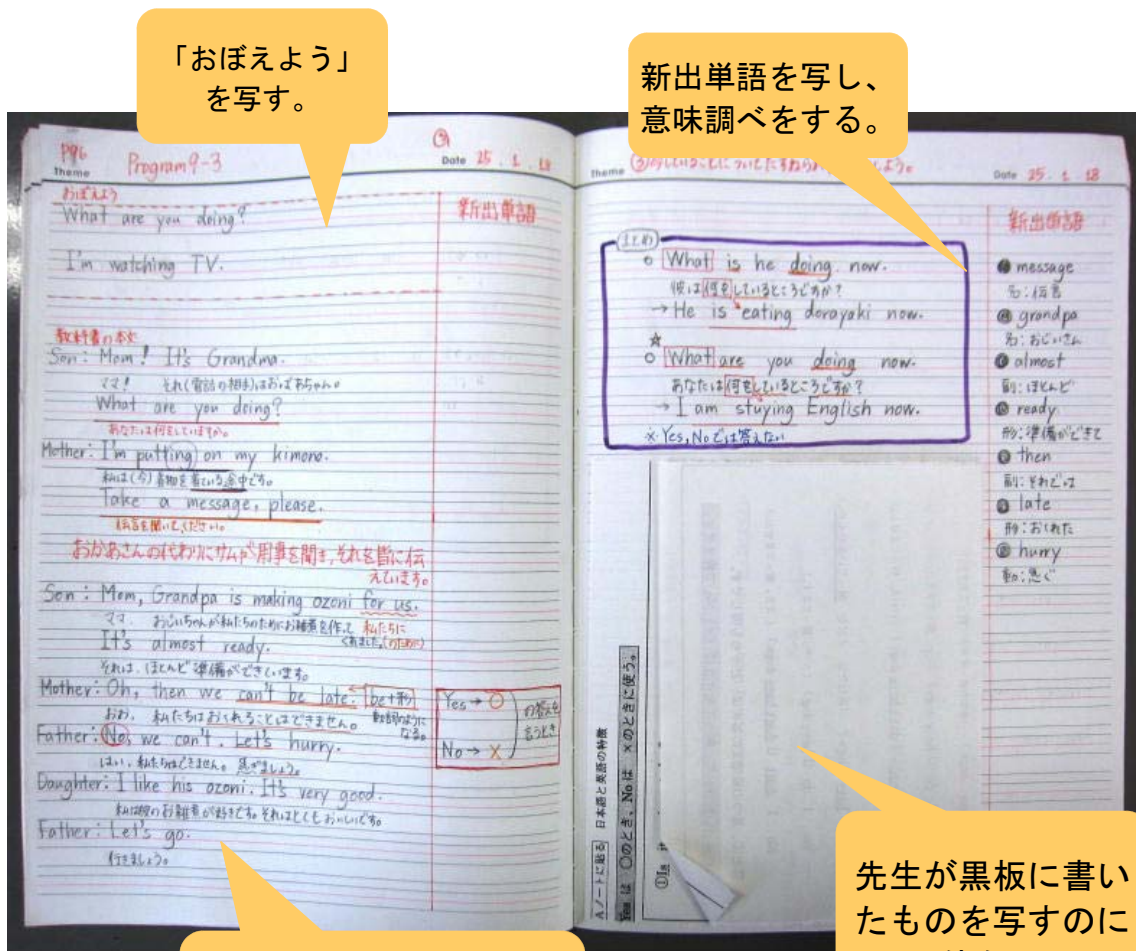 「おぼえよう」
を写す。
新出単語を写し、
意味調べをする。
P96
Program 9-3
theme
Date 25 . 1 . 18
おぼえよう
What are you doing?
新出単語
I'm watching TV.
教科書の本文
Son: Mom! It's Grandma.
ママ! それ(電話の相手)はおばあちゃん。
What are you doing?
あなたは何をしていますか。
Mother: I'm putting on my kimono.
私は(今)着物を着ている途中です。
Take a message, please.
伝言を聞いてください。
おかあさんの代わりにサムが用事を聞き、それを皆に伝
えています。
Son: Mom, Grandpa is making ozoni for us.
ママ、おじいちゃんが私たちのためにお雑煮を作って
私たちに
It's almost ready.
それは、ほとんど準備ができています。
Mother: Oh, then we can't be late. be+形
おお、私たちはおくれることはできません。
動詞のように
なる。
Father: No, we can't. Let's hurry.
はい、私たちはできません。急ぎましょう。
Daughter: I like his ozoni. It's very good.
私は彼のお雑煮が好きです。それはとてもおいしいです。
Father: Let's go.
行きましょう。
Yes → ○
No → ×
の答えを
言うとき
theme
Date 25 . 1 18
まとめ
What is he doing now.
彼は何をしているところですか?
→ He is eating dorayaki now.
☆
What are you doing now.
あなたは何をしているところですか?
→ I am stuying English now.
※Yes, Noでは答えない
新出単語
message
名:伝言
grandpa
名:おじいさん
almost
副:ほとんど
ready
形:準備ができて
then
副:それでは
late
形:おくれた
hurry
動:急ぐ
Aノートに貼る 日本語と英語の特徴
Yes は ○のとき、No は ×のときに使う。
①Is
先生が黒板に書い
たものを写すのに